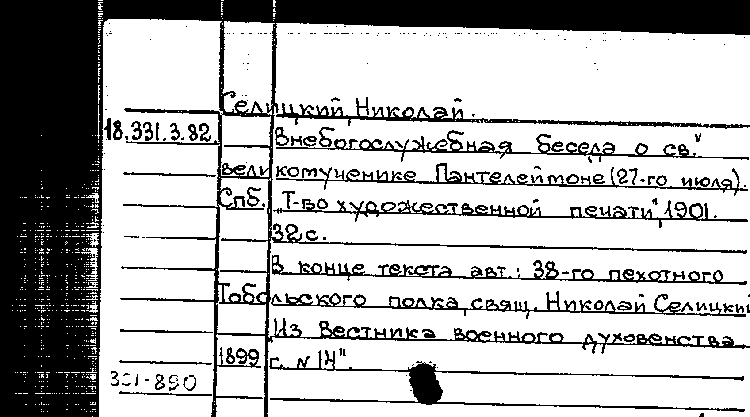 Селицкий, Николай.
18.331.3.82. Внебогослужебная беседа о св."
великомученике Пантелеймоне (27-го июля).
Спб. „Т-во художественной печати", 1901.
32с.
В конце текста авт.: 38-го пехотного
Тобольского полка, свящ. Николай Селицкий
„Из Вестника военного духовенства
1899 г. N 14".
301-890